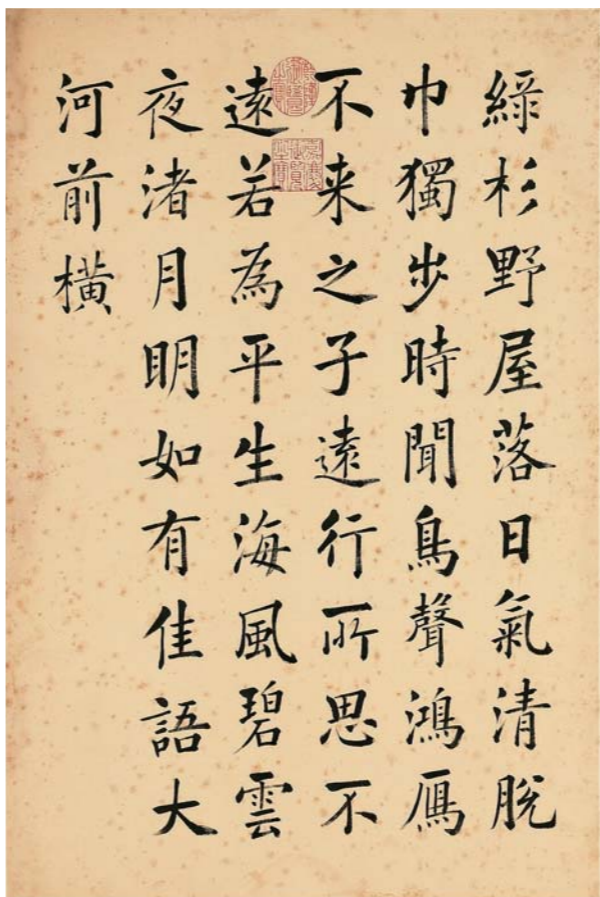 綠杉野屋落日氣清脫
巾獨步時聞鳥聲鴻鴈
不来之子遠行所思不
遠若為平生海風碧雲
夜渚月明如有佳語大
河前橫